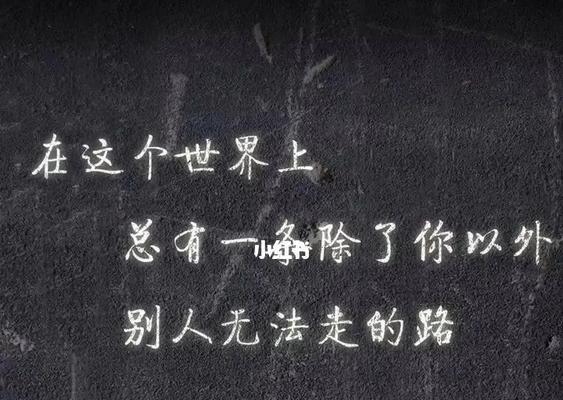 在这个世界上
总有一条除了你以外
小红书
别人无法走的路